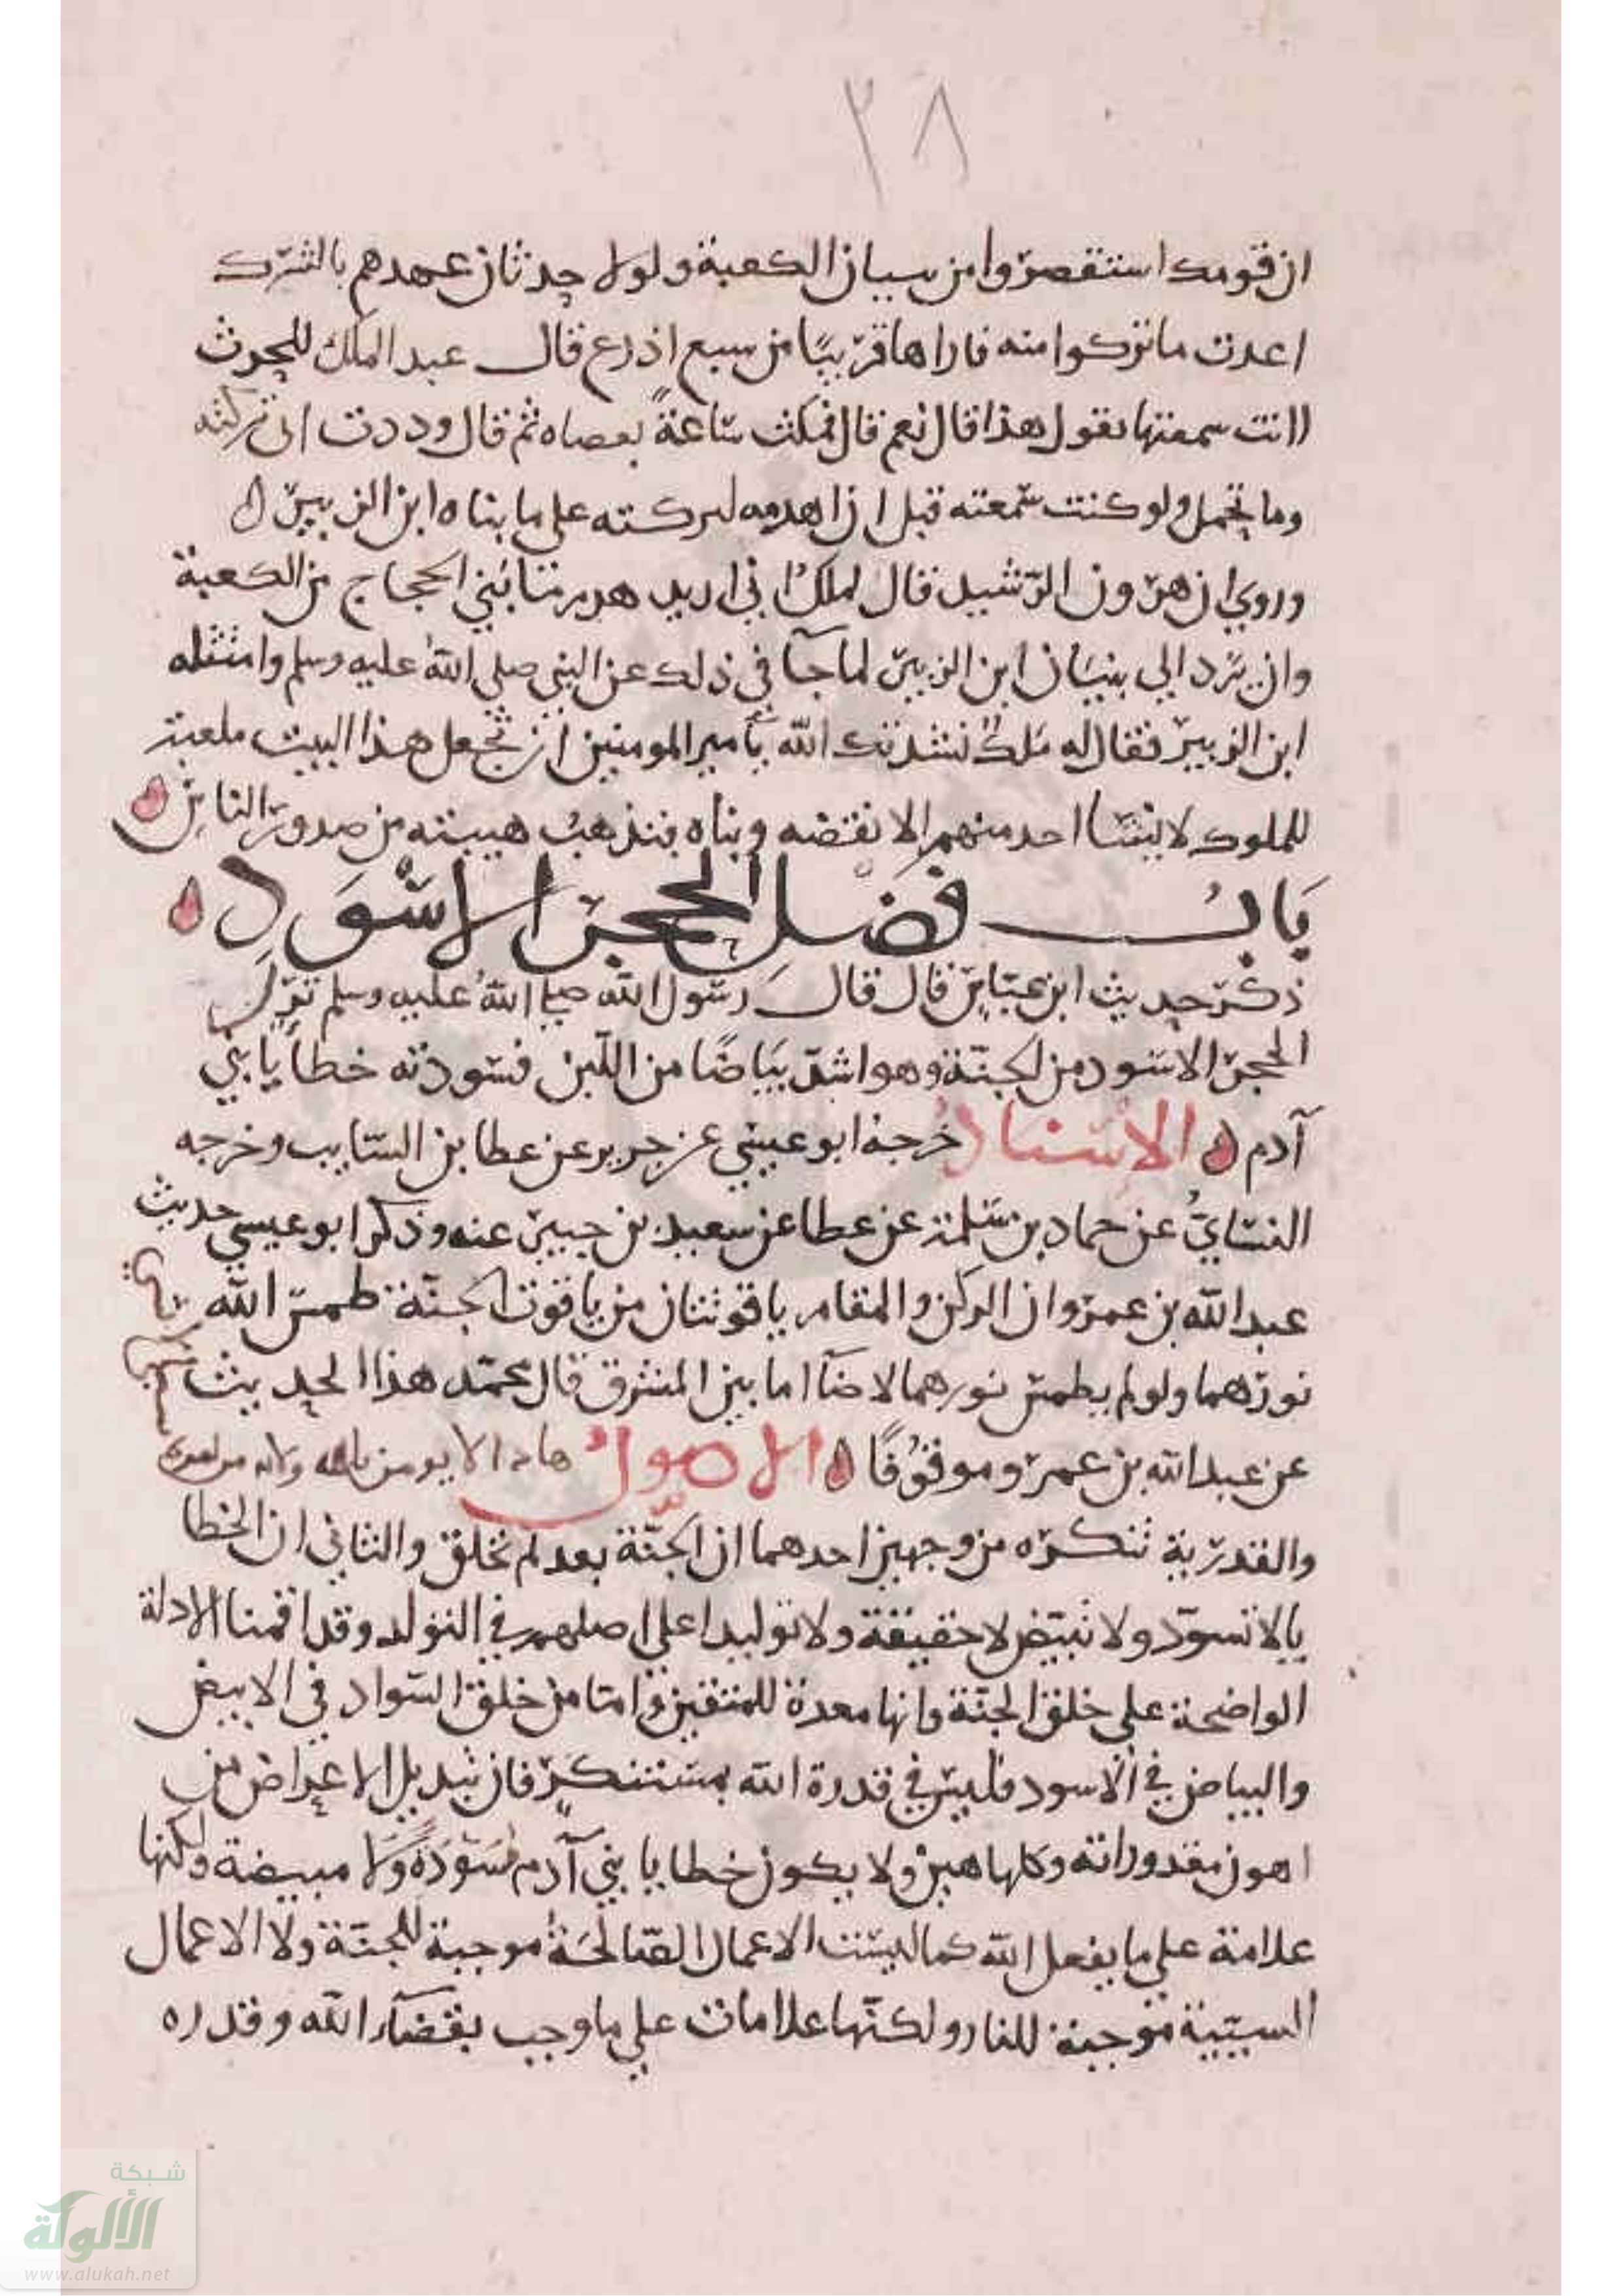 ٢٨
ان قومك استقصروا من بنيان الكعبة ولولا حدثان عهدهم بالشرك
اعدت ما تركوا منه فاراها قريبًا من سبع اذرع قال عبد الملك للحرث
اانت سمعتها تقول هذا قال نعم قال فمكث ساعةً بعصاه ثم قال وددت اني تركته
وما تحمل ولو كنت سمعته قبل ان اهدمه لتركته على ما بناه ابن الزبير
وروي ان هرون الرشيد قال لملك اني اريد هدم ما بني الحجاج من الكعبة
وان يرد الي بنيان ابن الزبير لما جآ في ذلك عن النبي صلي الله عليه وسلم وامتثله
ابن الزبير فقال له ملك نشدتك الله يآمير المومنين ان تجعل هذا البيت ملعبة
للملوك لا يشآ احد منهم الا نقضه وبناه فتذهب هيبته من صدور الناس
باب فضل الحجر الاسود
ذكر حديث ابن عباس قال قال رسول الله صلي الله عليه وسلم نزل
الحجر الاسود من الجنّة وهو اشدّ بياضًا من اللبن فسودته خطايا بني
آدم الاسناد خرجه ابو عيسي عن جرير عن عطا بن السايب وخرجه
النسايُّ عن حماد بن سلمة عن عطا عن سعيد بن جبير عنه وذكر ابو عيسي حديث
عبد الله بن عمرو ان الركن والمقام ياقوتتان من ياقوت الجنّة طمس الله
نورهما ولو لم يطمس نورهما لاضآا ما بين المشرق قال محمد هذا الحديث
عن عبد الله بن عمرو موقوفًا الاصول هذا الا يومن بالله
والقدرية تنكره من وجهين احدهما ان الجنّة بعد لم تخلق والثاني ان الخطا
يا لا تسوّد ولا تبيّض لا حقيقة ولا توليدا علي اصلهم في التولد وقد اقمنا الادلة
الواضحة علي خلق الجنّة وانها معدة للمتقين واما من خلق السواد في الابيض
والبياض في الاسود فليس في قدرة الله بمستنكر فان تبديل الاعراض من
اهون مقدوراته وكلها هين ولا يكون خطايا بني آدم مسَوّدةً ولا مبيضة ولكنها
علامة علي ما يفعل الله كما ليست الاعمال الصّالحَة موجبة للجنّة ولا الاعمال
السيّية موجبة للنار ولكنّها علامات علي ما وجب بقضآء الله وقدره
شبكة
الألوكة
www.alukah.net